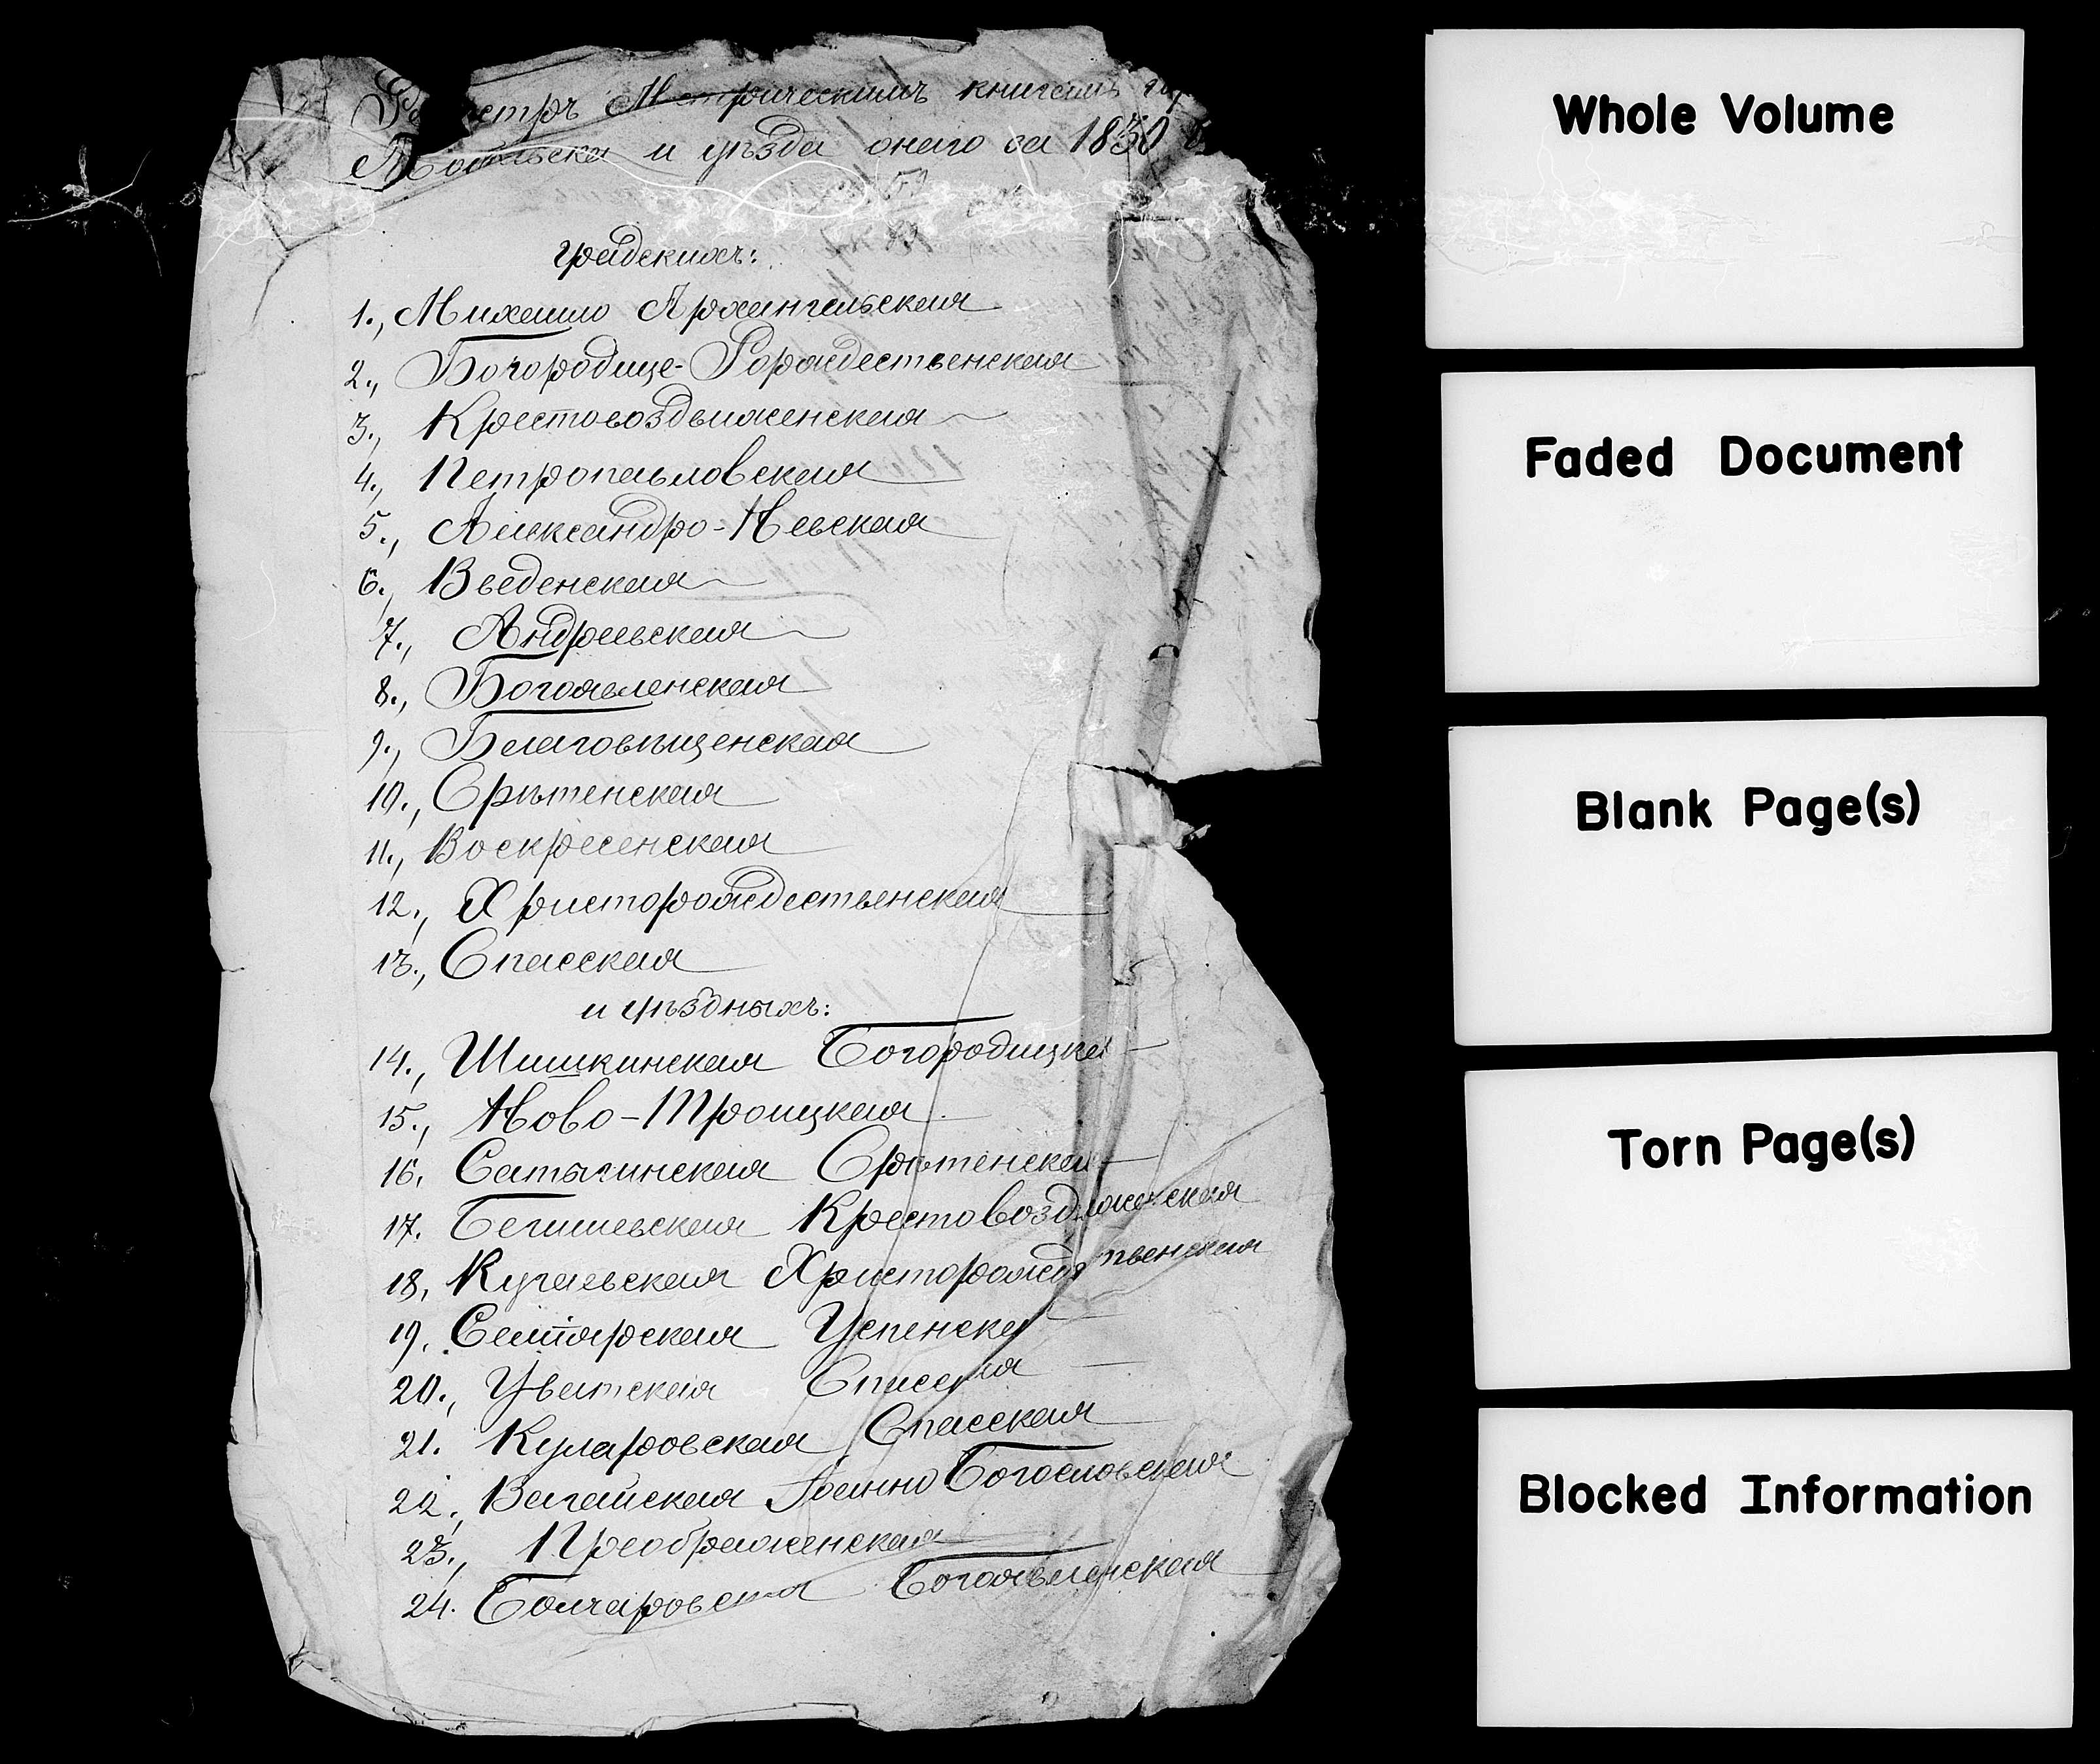 Реестръ Метрическимъ книгамъ
Тобольска и уѣзда онаго за 1830
градскихъ:
1., Михаило Архангельская
2., Богородице-Рорждественская
3., Крестовоздвиженская
4., Петропавловская
5., Александро-Невская
6., Введенская
7., Андреевская
8., Богоявленская
9., Благовѣщенская
10., Срѣтенская
11., Воскресенская
12., Христорождественская
13., Спасская
и уѣздныхъ:
14., Шишкинская Богородицка
15., Ново-Троицкая
16, Сатыгинская Срѣтенская
17. Бегишевская Крестовоздвиженская
18, Кугаевская Христорождественская
19. Самарская Успенска
20., Уватская Спасская
21. Куларовская Спасская
22., Вагайская Іоанно Богословская
23., Преображенская
24. Бончаровская Богоявленская
Whole Volume
Faded Document
Blank Page(s)
Torn Page(s)
Blocked Information